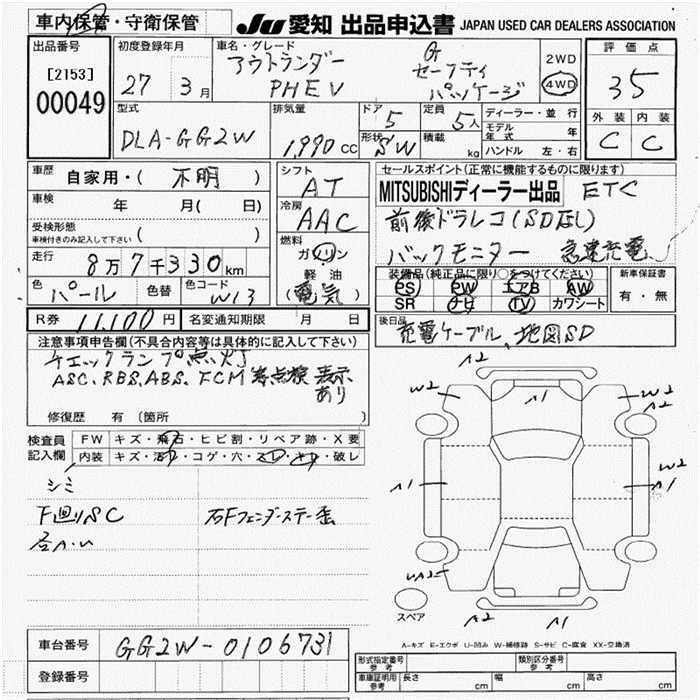 車内保管・守衛保管
JU 愛知 出品申込書 JAPAN USED CAR DEALERS ASSOCIATION
出品番号
[2153]
00049
初度登録年月
27 3月
車名・グレード
アウトランダー
PHEV
G
セーフティ
パッケージ
2WD
4WD
評価点
35
外装 内装
C C
型式
DLA-GG2W
排気量
1,990 cc
ドア
5
形状
SW
定員
5人
積載
kg
ディーラー・並行
モデル年式 年
ハンドル 左・右
車歴 自家用・( 不明 )
車検 年 月( 日)
受検形態
車検付きのみ記入して下さい ( )
走行 8万7千330km
色 パール 色替 色コード W13
シフト
AT
冷房
AAC
燃料
ガソリン
軽油
(電気)
セールスポイント(正常に機能するものに限ります)
MITSUBISHIディーラー出品 ETC
前後ドラレコ(SDなし)
バックモニター 急速充電
装備品(純正品に限り○をつけてください)
PS PW エアB AW
SR ナビ TV カワシート
新車保証書
有・無
R券 11,100円 名変通知期限 月 日
後日品
充電ケーブル、地図SD
注意事項申告欄(不具合内容等は具体的に記入して下さい)
チェックランプ点灯
ASC、RBS、ABS、FCM等点検 表示
あり
修復歴 有 〔箇所 〕
検査員
記入欄
FW キズ・飛石・ヒビ割・リペア跡・X要
内装 キズ・汚れ・コゲ・穴・スレ・キレ・破レ
シミ
下廻りSC
右Fフェンダーステー歪
A2
W2
A1
W2
A2
A1
W2
A1
WA2
A2
A1
スペア
A-キズ E-エクボ U-凹み W-補修跡 S-サビ C-腐食 XX-交換済
車台番号 GG2W-0106731
登録番号
形式指定番号
参考
類別区分番号
参考
車庫証明用
参考
長さ cm 幅 cm 高さ cm